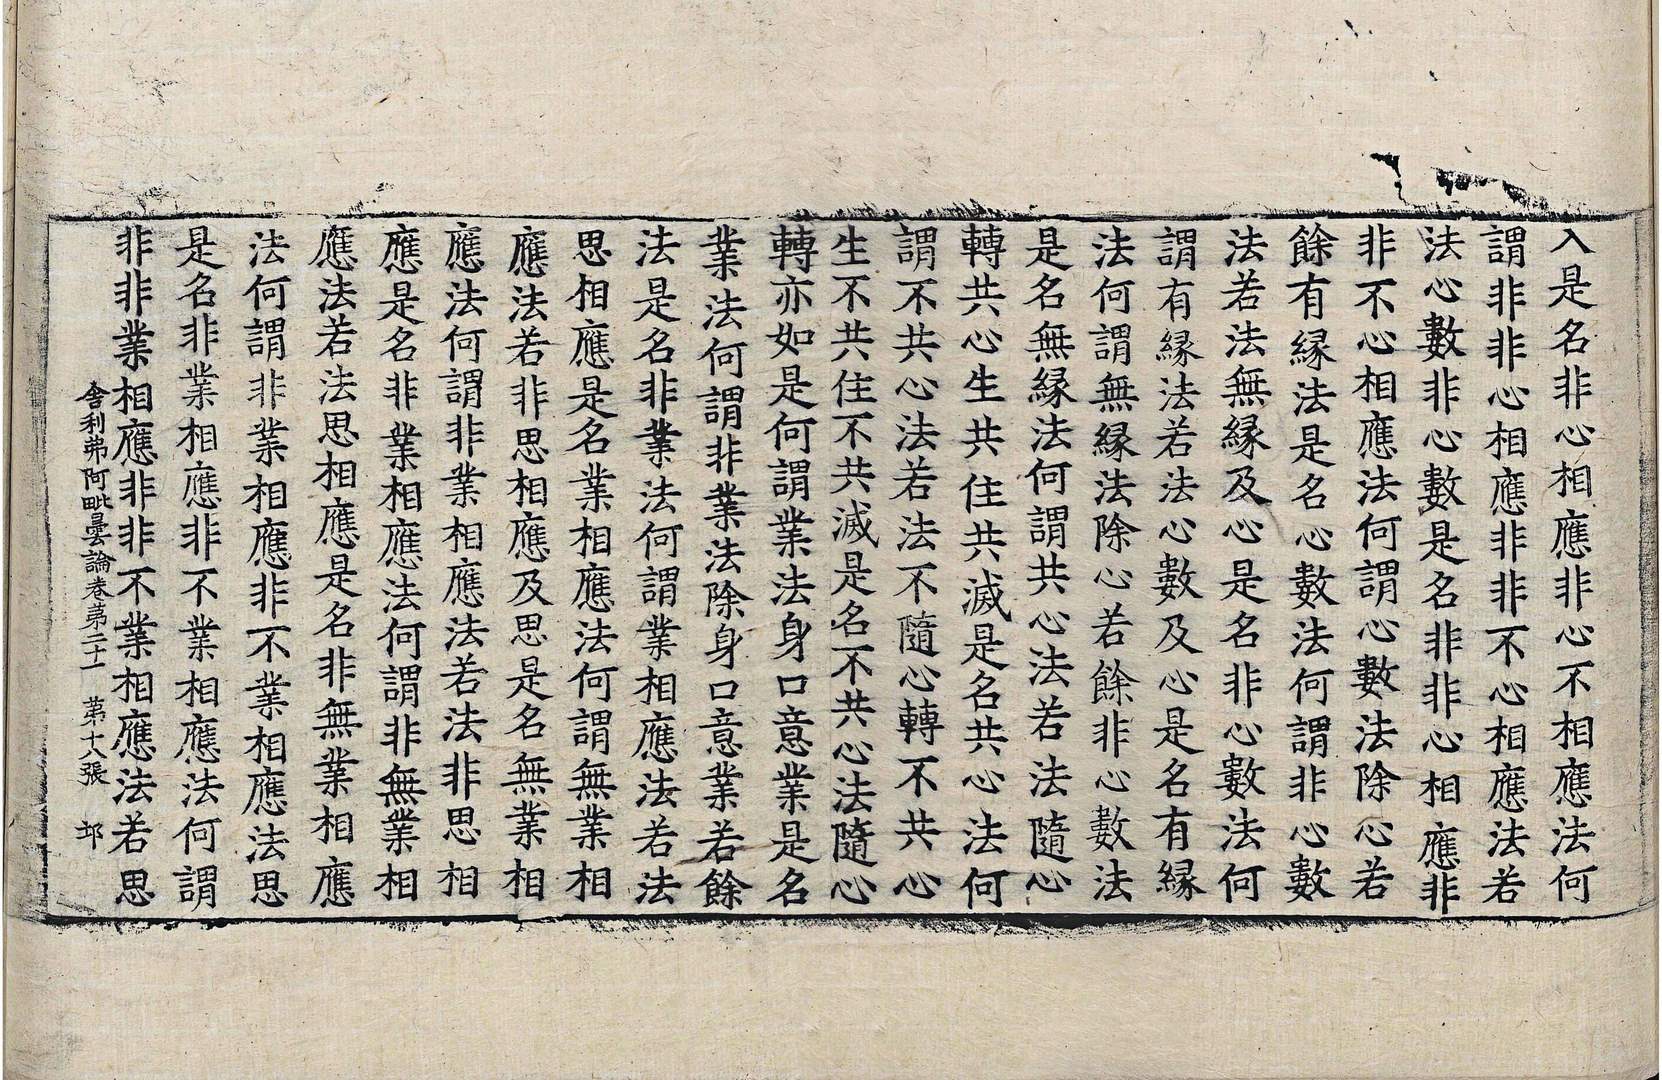 入是名非心相應非心不相應法何
謂非非心相應非非不心相應法若
法心數非心數是名非非心相應非
非不心相應法何謂心數法除心若
餘有緣法是名心數法何謂非心數
法若法無緣及心是名非心數法何
謂有緣法若法心數及心是名有緣
法何謂無緣法除心若餘非心數法
是名無緣法何謂共心法若法隨心
轉共心生共住共滅是名共心法何
謂不共心法若法不隨心轉不共心
生不共住不共滅是名不共心法隨心
轉亦如是何謂業法身口意業是名
業法何謂非業法除身口意業若餘
法是名非業法何謂業相應法若法
思相應是名業相應法何謂無業相
應法若非思相應及思是名無業相
應法何謂非業相應法若法非思相
應是名非業相應法何謂非無業相
應法若法思相應是名非無業相應
法何謂非業相應非不業相應法思
是名非業相應非不業相應法何謂
非非業相應非非不業相應法若思
舍利弗阿毗曇論卷第二十一 第十八張 邙